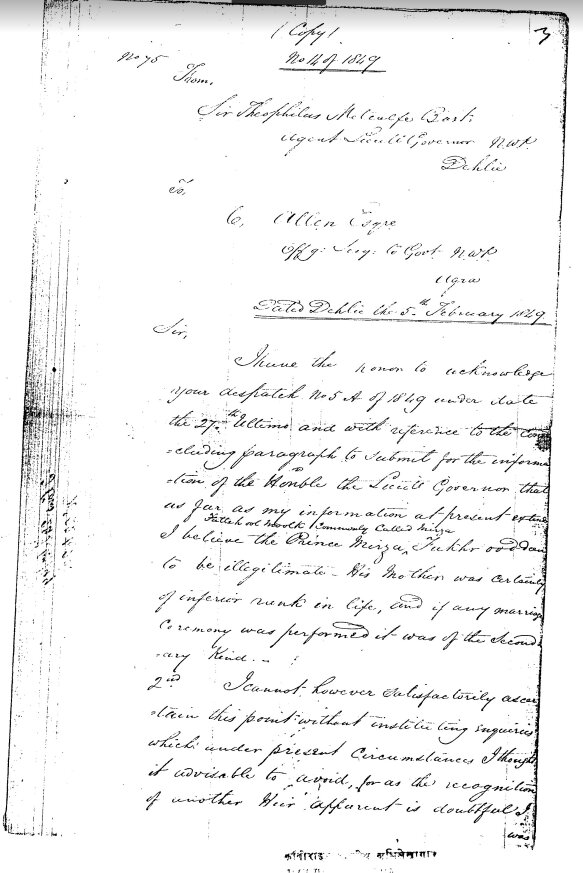 (Copy)
3
No 75
No 14 of 1849
From,
Sir Theophilus Metcalfe Bart:
Agent Lieutt Governor N.W.P.
Dehlie
To,
C, Allen Esqre
Offg: Secy: to Govt N.W.P.
Agra
Dated Dehlie the 5th February 1849
Sir,
I have the honor to acknowledge
your despatch No 5 A of 1849 under date
the 27th Ultimo and with reference to the con
=cluding paragraph to submit for the informa
=tion of the Honble the Lieutt Governor that
as far as my information at present extends
Futteh ool Moolk Commonly Called Mirza
I believe the Prince Mirza, Fukhr ood deen
to be illegitimate - His Mother was certainly
of inferior rank in life, and if any marriage
Ceremony was performed it was of the Second
=ary Kind. -
2nd I cannot however satisfactorily ascer
=tain this point without instituting enquiries
which under present Circumstances I thought
it advisable to avoid, for as the recognition
of another Heir apparent is doubtful I
was